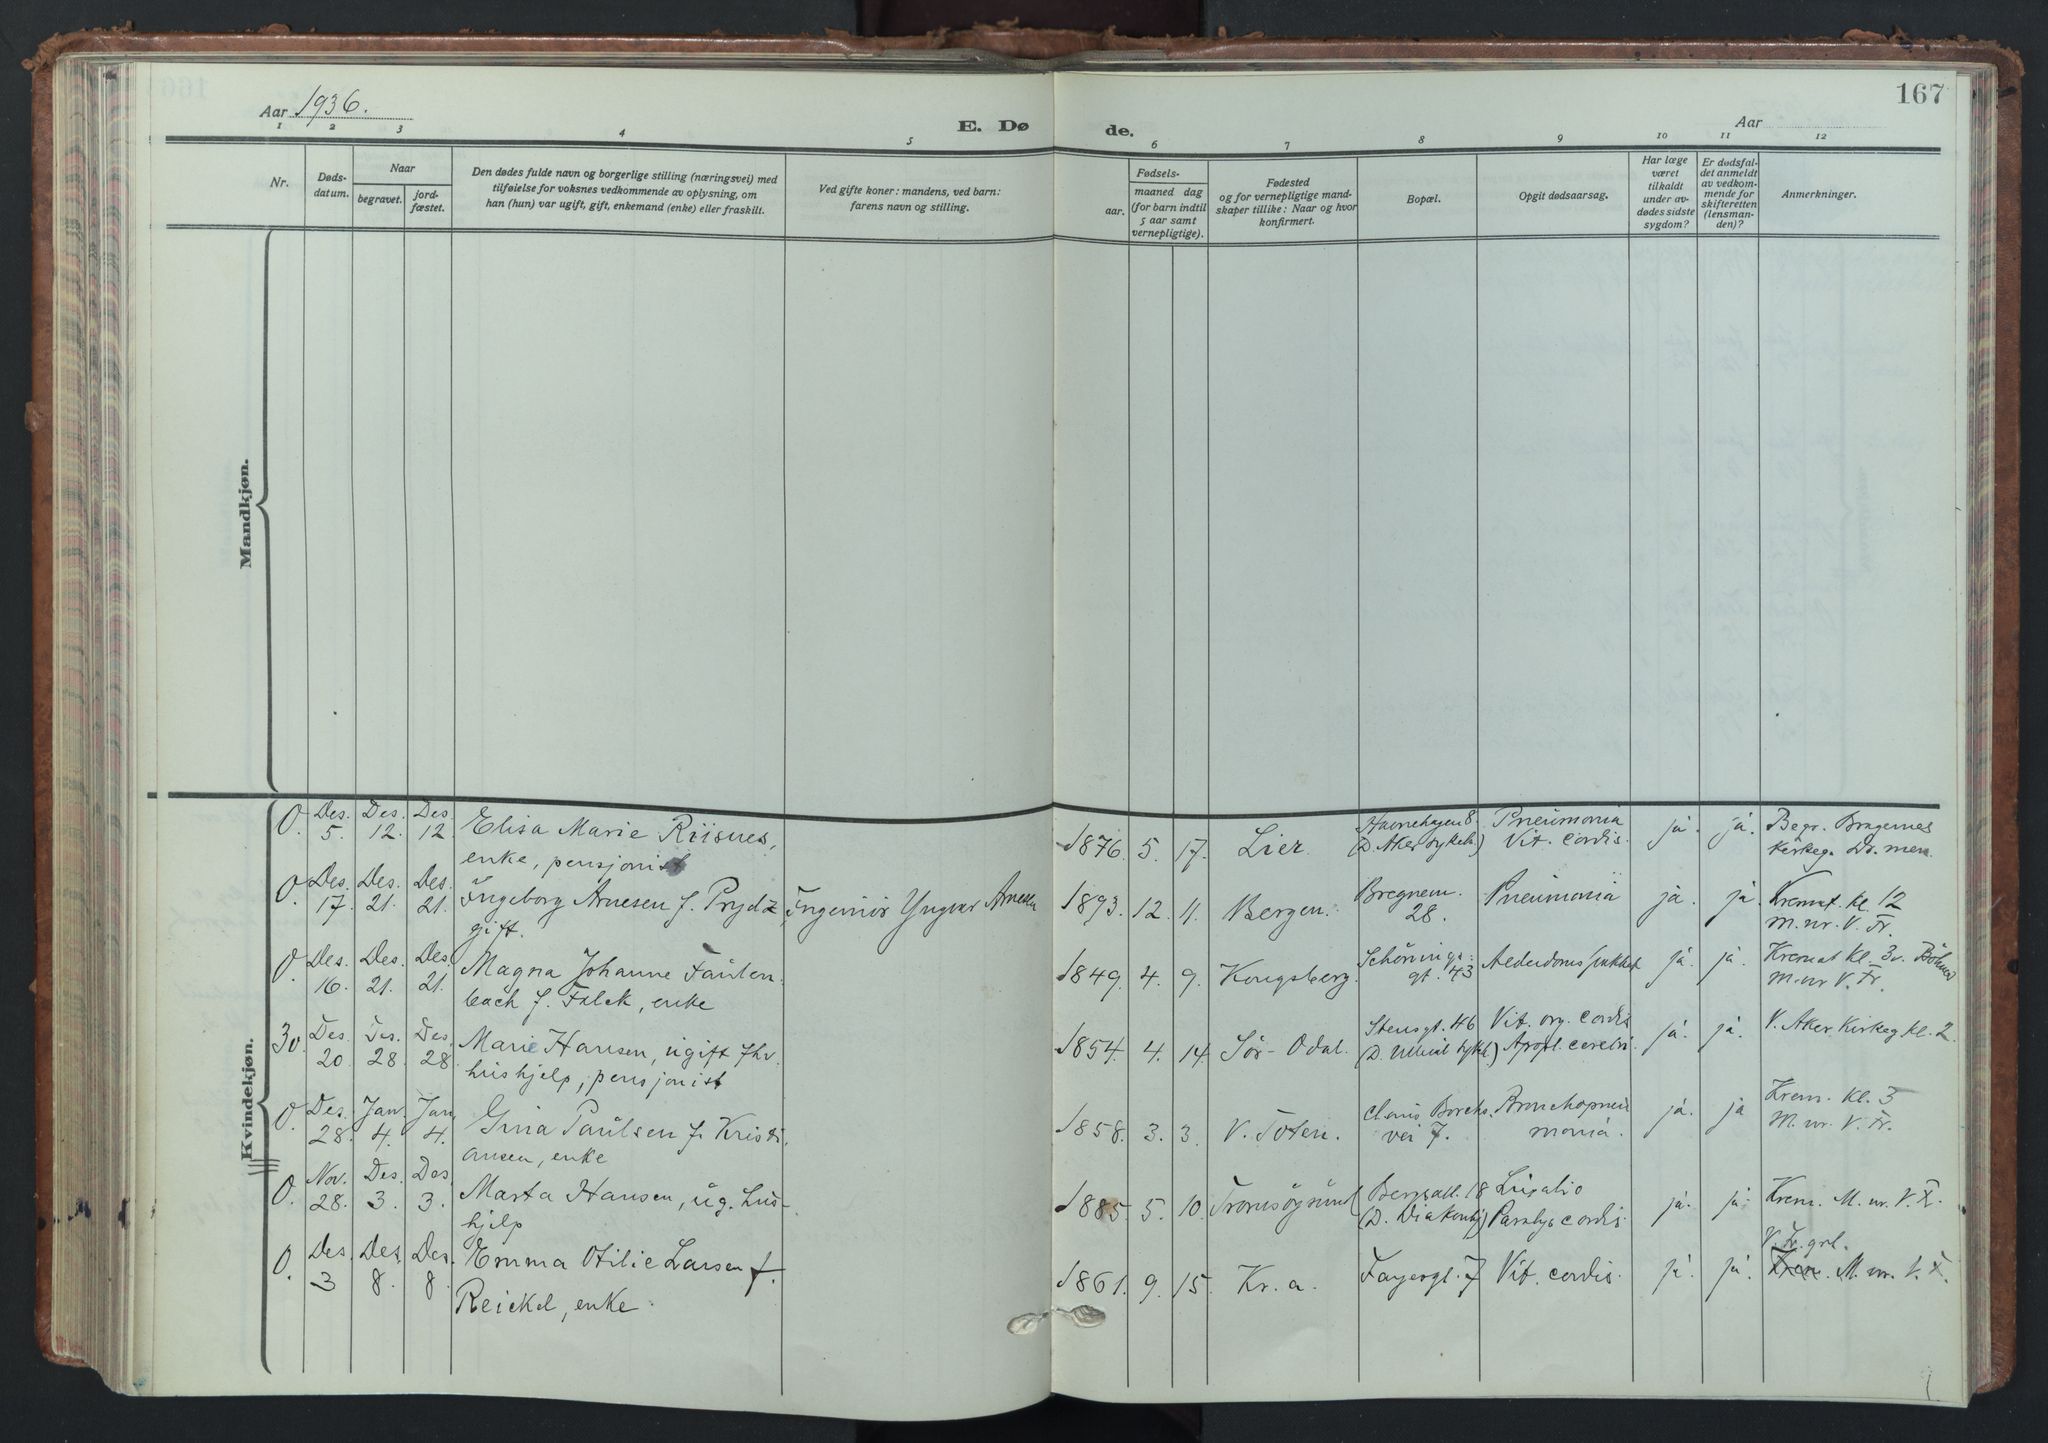 167
Aar 1936.
E. Døde.
Aar
1 2 3 4 5 6 7 8 9 10 11 12
Nr.
Døds-
datum.
Naar
begravet.
jord-
fæstet.
Den dødes fulde navn og borgerlige stilling (næringsvei) med
tilføielse for voksnes vedkommende av oplysning, om
han (hun) var ugift, gift, enkemand (enke) eller fraskilt.
Ved gifte koner: mandens, ved barn:
farens navn og stilling.
Fødsels-
aar.
maaned dag
(for barn indtil
5 aar samt
vernepligtige).
Fødested
og for vernepligtige mand-
skaper tillike: Naar og hvor
konfirmert.
Bopæl.
Opgit dødsaarsag.
Har læge
været
tilkaldt
under av-
dødes sidste
sygdom?
Er dødsfal-
det anmeldt
av vedkom-
mende for
skifteretten
(lensman-
den)?
Anmerkninger.
Mandkjøn.
Kvindekjøn.
0. Des. 5. Des. 12. Des. 12
Elisa Marie Riisnes,
enke, pensjonist
1876. 5. 17. Lier.
(D. Aker sykeh.)
Pneumonia
Vit. cordis.
ja. ja.
Begr. Bragernes
Kirkeg. Dr.men.
0. Des. 17. Des. 21. Des. 21.
Ingeborg Arnesen f. Prydz,
gift.
Ingeniør Yngvar Arnesen
1893. 12. 11. Bergen.
Bregnem.
28.
Pneumonia
ja. ja.
Kremat. kl. 12
M.nr. V. Fr.
0 Des. 16. Des. 21. Des. 21.
Magna Johanne Faulen-
bach f. Falck, enke
1849. 4. 9. Kongsberg.
Schønings-
gt. 43
ja. ja.
Kremat kl. 3
M.nr V. Fr.
30. Des. 20 Des. 28. Des. 28
Marie Hansen, ugift fhv
hushjelp, pensjonist
1854. 4. 14. Sør-Odal.
Stensgt. 46
(D. Ullevål sykh.)
Vit. org. cordis
Apopl. cerebri.
ja. ja.
V. Aker Kirkeg kl. 2
0. Des. 28. Jan 4. Jan 4.
Gina Paulsen f. Kristi-
ansen, enke
1858. 3. 3. V. Toten.
Claus Borchs.
vei 7.
Bronchopneu
monia.
ja. ja
Krem. kl. 3
M.nr. V. Fr.
0. Nov. 28. Des. 3. Des. 3.
Marta Hansen, ug. hus-
hjelp
1885. 5. 10. Tromsøysund
(D. Diakonhj)
Paralys cordis.
ja. ja.
Krem. M.nr. V. F.
0. Des. 3 Des. 8. Des. 8.
Emma Otilie Larsen f.
Reickel, enke
1861. 9. 15. Kr.a.
Fayesgt. 7
Vit. cordis.
ja. ja.
V. Fr. grl.
Krem. M.nr. V. F.